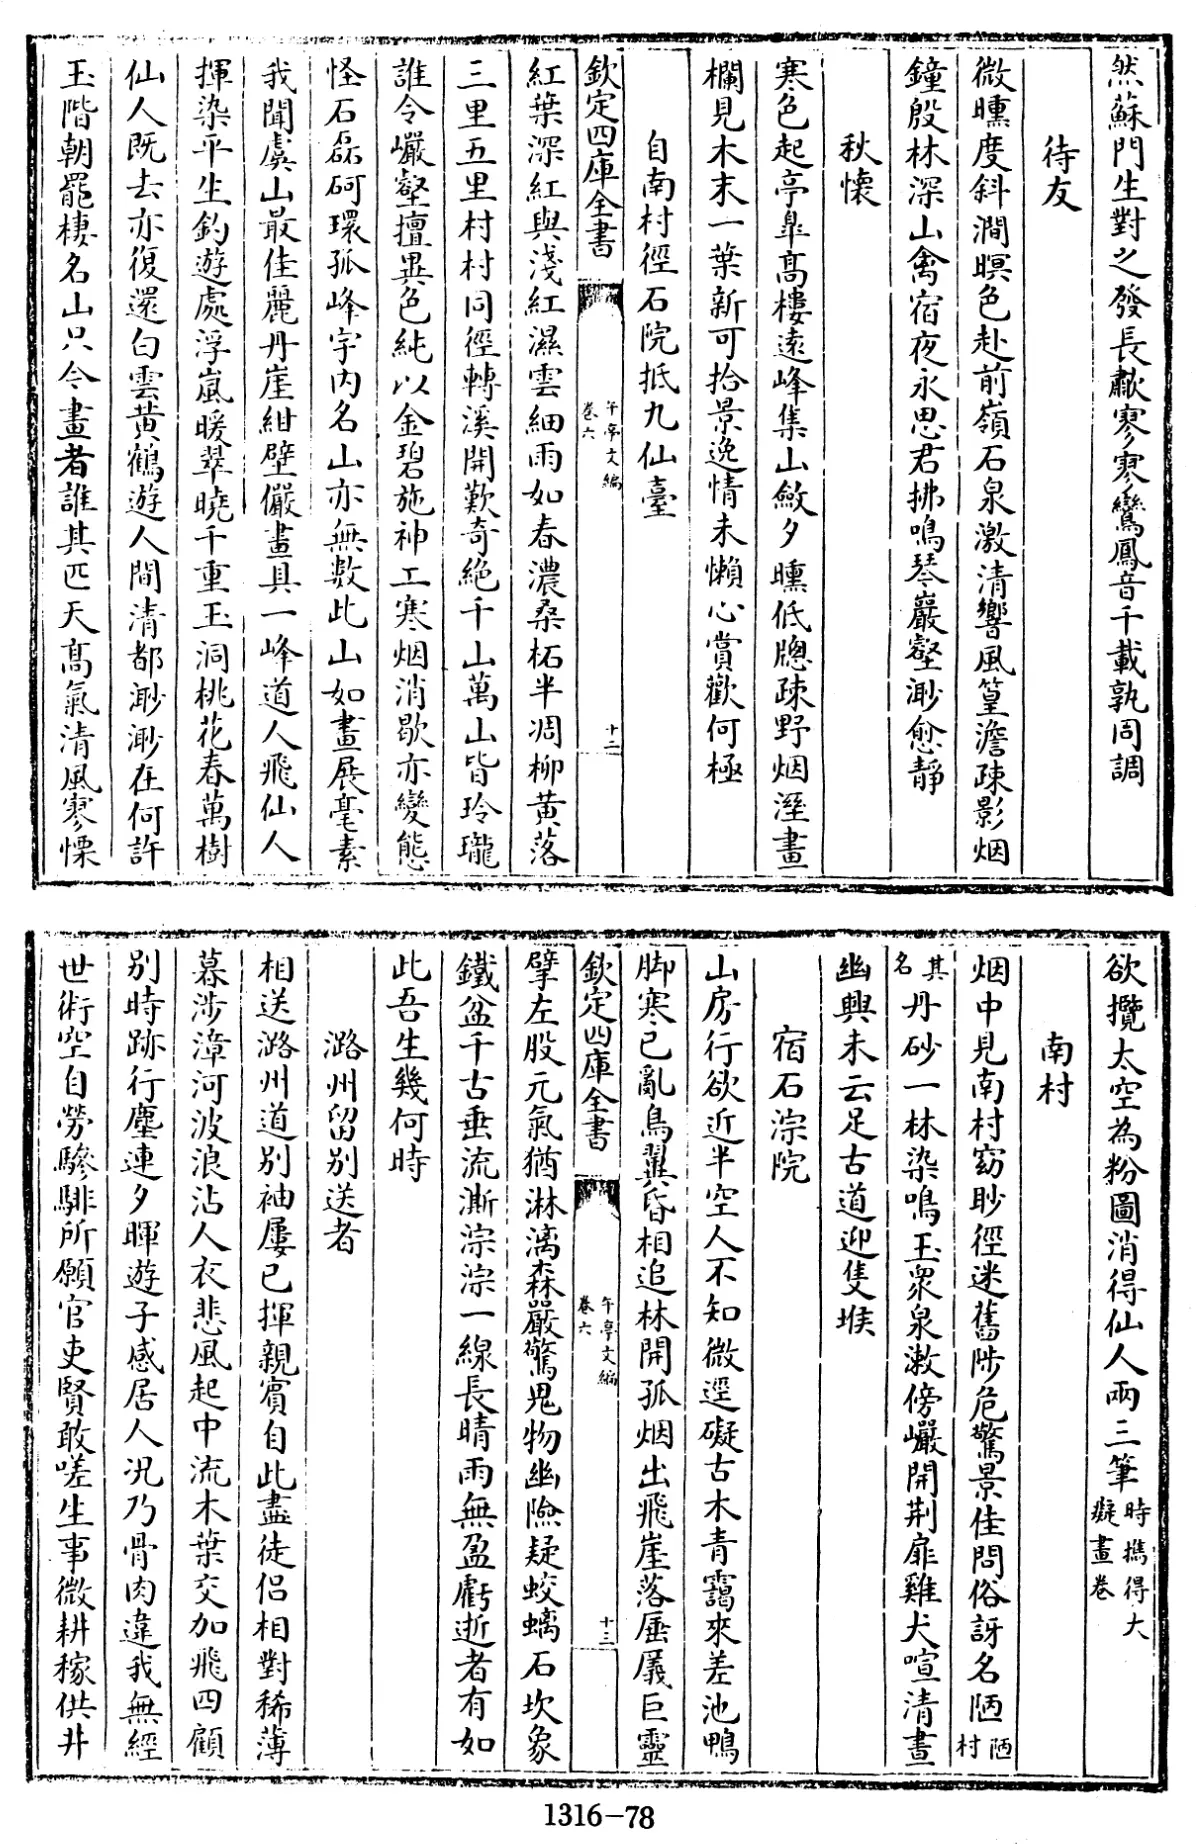 然蘇門生對之發長歗寥寥鸞鳳音千載孰同調
待友
微曛度斜澗暝色赴前嶺石泉激清響風篁澹疎影烟
鐘殷林深山禽宿夜永思君拂鳴琴巖壑渺愈靜
秋懷
寒色起亭臯高樓遠峰集山斂夕曛低牕疎野烟溼畫
欄見木末一葉新可拾景逸情未懶心賞歡何極
自南村徑石院抵九仙臺
欽定四庫全書
午亭文編
卷六
十二
紅葉深紅與淺紅濕雲細雨如春濃桑柘半凋柳黄落
三里五里村村同徑轉溪開歎奇絶千山萬山皆玲瓏
誰令巖壑擅異色純以金碧施神工寒烟消歇亦變態
怪石磊砢環孤峰宇内名山亦無數此山如畫展毫素
我聞虞山最佳麗丹崖紺壁儼畫具一峰道人飛仙人
揮染平生釣遊處浮嵐暖翠曉千重玉洞桃花春萬樹
仙人既去亦復還白雲黄鶴遊人間清都渺渺在何許
玉階朝罷棲名山只今畫者誰其匹天髙氣清風寥慄
欲攬太空為粉圖消得仙人兩三筆時攜得大癡畫卷
南村
烟中見南村窈眇徑迷舊陟危驚景佳問俗訝名陋陋村
其名丹砂一林染鳴玉衆泉漱傍巖開荆扉雞犬喧清晝
幽興未云足古道迎隻堠
宿石淙院
山房行欲近半空人不知微逕礙古木青靄來差池鴨
脚寒已亂鳥翼昏相追林開孤烟出飛崖落厜㕒巨靈
欽定四庫全書
午亭文編
卷六
十三
擘左股元氣猶淋漓森嚴驚鬼物幽險疑蛟螭石坎象
鐵盆千古垂流澌淙淙一線長晴雨無盈虧逝者有如
此吾生幾何時
潞州留别送者
相送潞州道别袖屢已揮親賓自此盡徒侣相對稀薄
暮涉漳河波浪沾人衣悲風起中流木葉交加飛四顧
别時跡行塵連夕暉遊子感居人况乃骨肉違我無經
世術空自勞驂騑所願官吏賢敢嗟生事微耕稼供井
1316-78